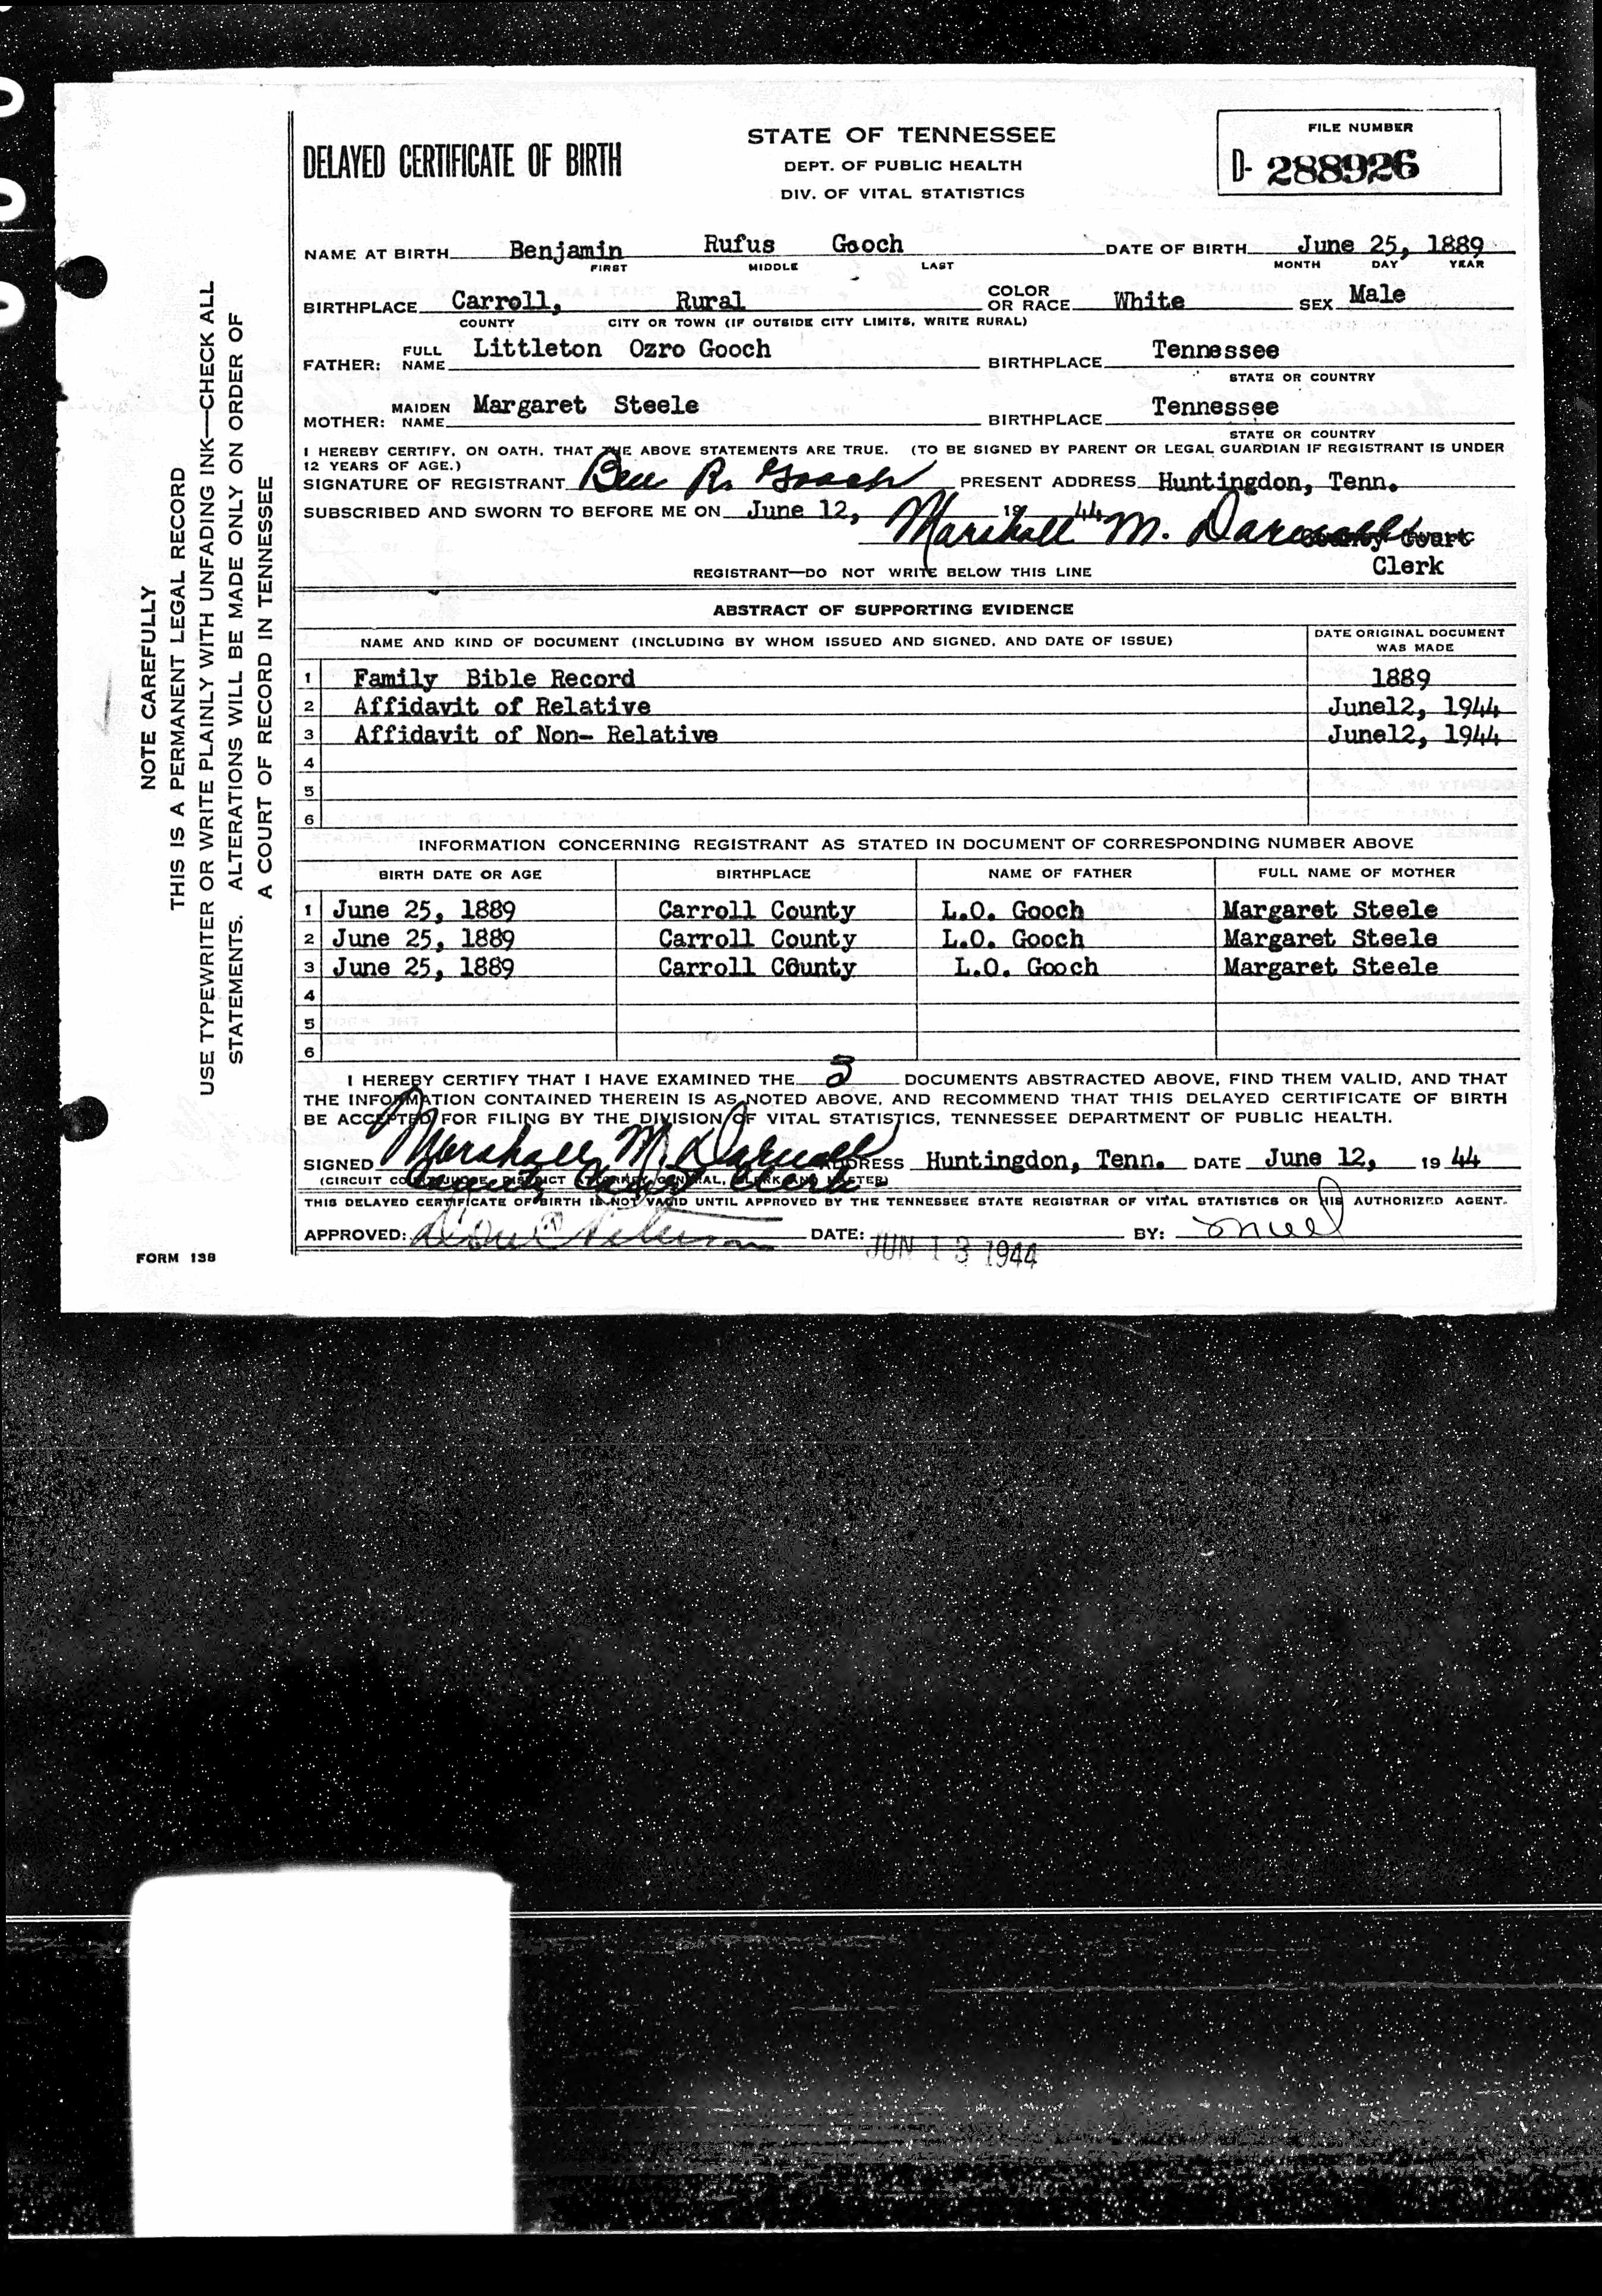 DELAYED CERTIFICATE OF BIRTH
STATE OF TENNESSEE
DEPT. OF PUBLIC HEALTH
DIV. OF VITAL STATISTICS
FILE NUMBER
D- 288926
NAME AT BIRTH Benjamin Rufus Gooch DATE OF BIRTH June 25, 1889
FIRST MIDDLE LAST MONTH DAY YEAR
BIRTHPLACE Carroll, Rural COLOR OR RACE White SEX Male
COUNTY CITY OR TOWN (IF OUTSIDE CITY LIMITS, WRITE RURAL)
FATHER: FULL NAME Littleton Ozro Gooch BIRTHPLACE Tennessee
STATE OR COUNTRY
MOTHER: MAIDEN NAME Margaret Steele BIRTHPLACE Tennessee
STATE OR COUNTRY
I HEREBY CERTIFY, ON OATH, THAT THE ABOVE STATEMENTS ARE TRUE. (TO BE SIGNED BY PARENT OR LEGAL GUARDIAN IF REGISTRANT IS UNDER
12 YEARS OF AGE.)
SIGNATURE OF REGISTRANT Ben R. Gooch PRESENT ADDRESS Huntingdon, Tenn.
SUBSCRIBED AND SWORN TO BEFORE ME ON June 12, 19 44
Marshall M. Darnall County Court
Clerk
REGISTRANT—DO NOT WRITE BELOW THIS LINE
ABSTRACT OF SUPPORTING EVIDENCE
NAME AND KIND OF DOCUMENT (INCLUDING BY WHOM ISSUED AND SIGNED, AND DATE OF ISSUE) DATE ORIGINAL DOCUMENT WAS MADE
1 Family Bible Record 1889
2 Affidavit of Relative June12, 1944
3 Affidavit of Non- Relative June12, 1944
4
5
6
INFORMATION CONCERNING REGISTRANT AS STATED IN DOCUMENT OF CORRESPONDING NUMBER ABOVE
BIRTH DATE OR AGE BIRTHPLACE NAME OF FATHER FULL NAME OF MOTHER
1 June 25, 1889 Carroll County L.O. Gooch Margaret Steele
2 June 25, 1889 Carroll County L.O. Gooch Margaret Steele
3 June 25, 1889 Carroll County L.O. Gooch Margaret Steele
4
5
6
I HEREBY CERTIFY THAT I HAVE EXAMINED THE 3 DOCUMENTS ABSTRACTED ABOVE, FIND THEM VALID, AND THAT
THE INFORMATION CONTAINED THEREIN IS AS NOTED ABOVE, AND RECOMMEND THAT THIS DELAYED CERTIFICATE OF BIRTH
BE ACCEPTED FOR FILING BY THE DIVISION OF VITAL STATISTICS, TENNESSEE DEPARTMENT OF PUBLIC HEALTH.
SIGNED Marshall M. Darnall ADDRESS Huntingdon, Tenn. DATE June 12, 19 44
(CIRCUIT COURT JUDGE, DISTRICT ATTORNEY GENERAL, CLERK AND MASTER)
County Court Clerk
THIS DELAYED CERTIFICATE OF BIRTH IS NOT VALID UNTIL APPROVED BY THE TENNESSEE STATE REGISTRAR OF VITAL STATISTICS OR HIS AUTHORIZED AGENT.
APPROVED: DATE: JUN 13 1944 BY:
FORM 138
NOTE CAREFULLY
THIS IS A PERMANENT LEGAL RECORD
USE TYPEWRITER OR WRITE PLAINLY WITH UNFADING INK—CHECK ALL
STATEMENTS. ALTERATIONS WILL BE MADE ONLY ON ORDER OF
A COURT OF RECORD IN TENNESSEE